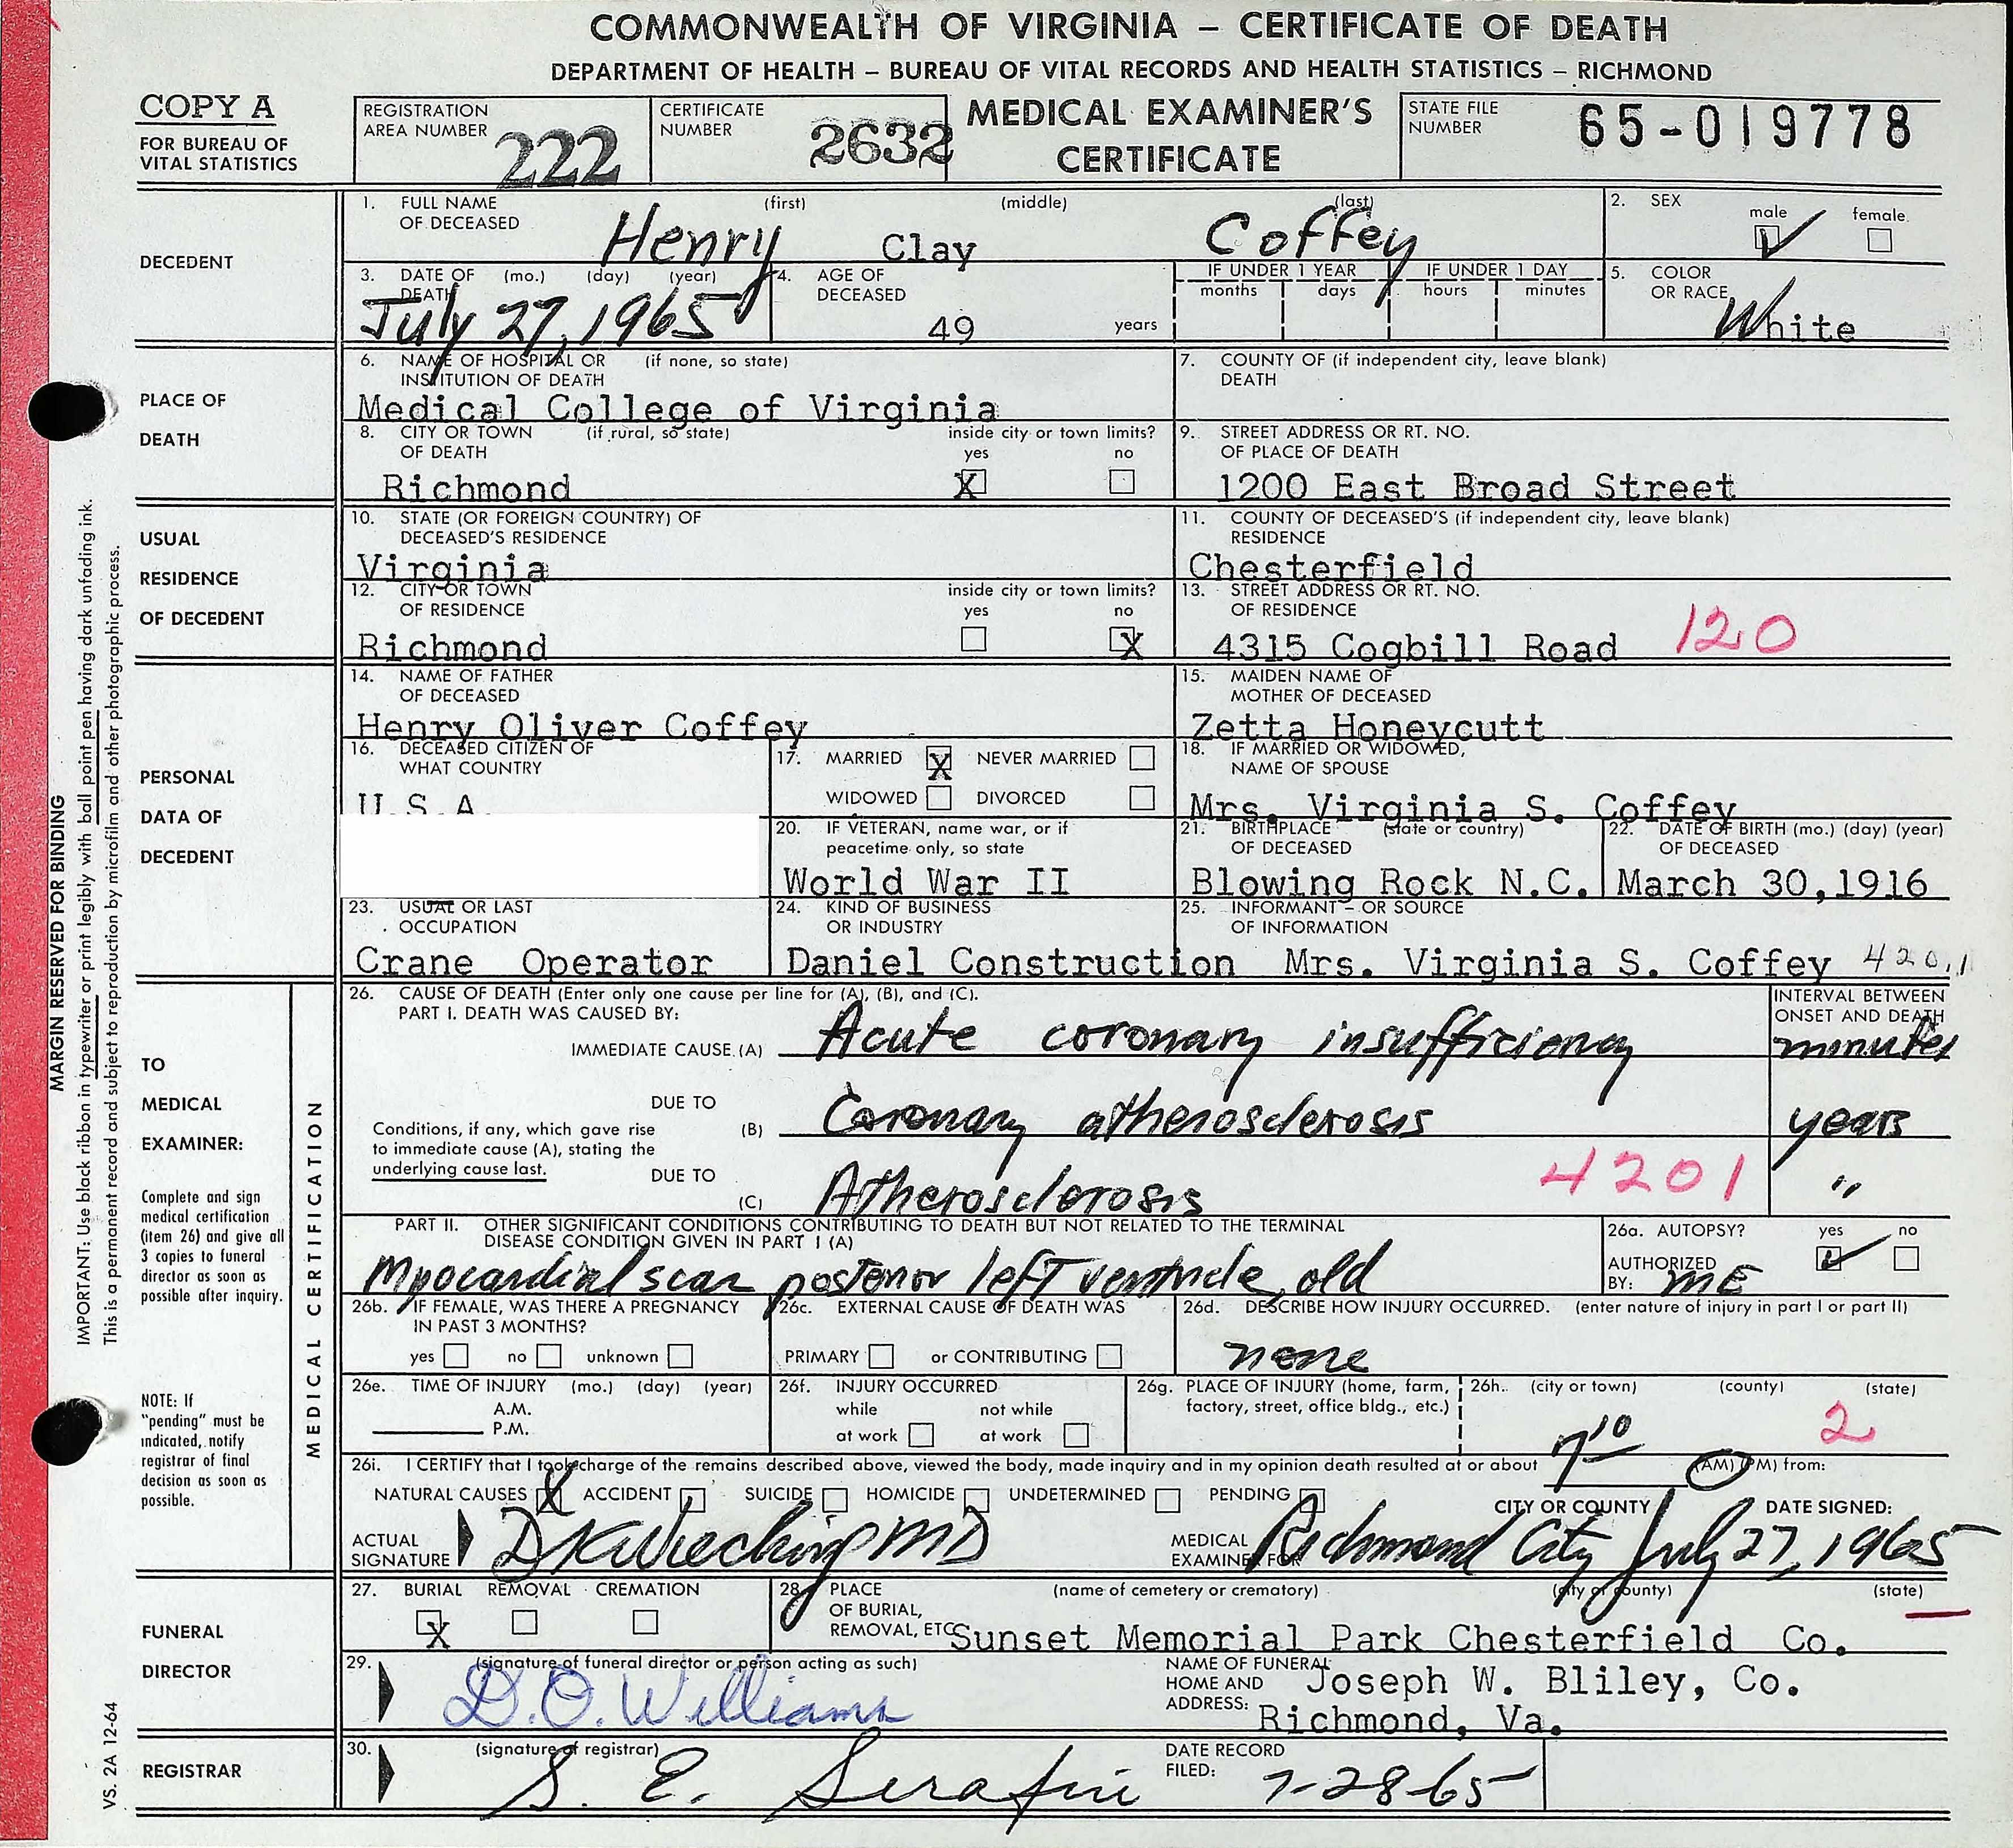 COMMONWEALTH OF VIRGINIA – CERTIFICATE OF DEATH
DEPARTMENT OF HEALTH – BUREAU OF VITAL RECORDS AND HEALTH STATISTICS – RICHMOND
COPY A
FOR BUREAU OF
VITAL STATISTICS
REGISTRATION
AREA NUMBER 222
CERTIFICATE
NUMBER 2632
MEDICAL EXAMINER'S
CERTIFICATE
STATE FILE
NUMBER 65-019778
DECEDENT
1. FULL NAME (first) (middle) (last)
OF DECEASED
Henry Clay Coffey
2. SEX
male female
3. DATE OF (mo.) (day) (year)
DEATH
July 27, 1965
4. AGE OF
DECEASED
49 years
IF UNDER 1 YEAR IF UNDER 1 DAY
months days hours minutes
5. COLOR
OR RACE
White
PLACE OF
DEATH
6. NAME OF HOSPITAL OR (if none, so state)
INSTITUTION OF DEATH
Medical College of Virginia
7. COUNTY OF (if independent city, leave blank)
DEATH
8. CITY OR TOWN (if rural, so state) inside city or town limits?
OF DEATH yes no
Richmond X
9. STREET ADDRESS OR RT. NO.
OF PLACE OF DEATH
1200 East Broad Street
USUAL
RESIDENCE
OF DECEDENT
10. STATE (OR FOREIGN COUNTRY) OF
DECEASED'S RESIDENCE
Virginia
11. COUNTY OF DECEASED'S (if independent city, leave blank)
RESIDENCE
Chesterfield
12. CITY OR TOWN inside city or town limits?
OF RESIDENCE yes no
Richmond X
13. STREET ADDRESS OR RT. NO.
OF RESIDENCE
4315 Cogbill Road 120
PERSONAL
DATA OF
DECEDENT
14. NAME OF FATHER
OF DECEASED
Henry Oliver Coffey
15. MAIDEN NAME OF
MOTHER OF DECEASED
Zetta Honeycutt
16. DECEASED CITIZEN OF
WHAT COUNTRY
U.S.A.
17. MARRIED X NEVER MARRIED
WIDOWED DIVORCED
18. IF MARRIED OR WIDOWED,
NAME OF SPOUSE
Mrs. Virginia S. Coffey
20. IF VETERAN, name war, or if
peacetime only, so state
World War II
21. BIRTHPLACE (state or country)
OF DECEASED
Blowing Rock N.C.
22. DATE OF BIRTH (mo.) (day) (year)
OF DECEASED
March 30,1916
23. USUAL OR LAST
OCCUPATION
Crane Operator
24. KIND OF BUSINESS
OR INDUSTRY
Daniel Construction
25. INFORMANT – OR SOURCE
OF INFORMATION
Mrs. Virginia S. Coffey 420.1
TO
MEDICAL
EXAMINER:
Complete and sign
medical certification
(item 26) and give all
3 copies to funeral
director as soon as
possible after inquiry.
NOTE: If
"pending" must be
indicated, notify
registrar of final
decision as soon as
possible.
MEDICAL CERTIFICATION
26. CAUSE OF DEATH (Enter only one cause per line for (A), (B), and (C).
PART I. DEATH WAS CAUSED BY:
INTERVAL BETWEEN
ONSET AND DEATH
IMMEDIATE CAUSE (A) Acute coronary insufficiency minutes
DUE TO
Conditions, if any, which gave rise
to immediate cause (A), stating the
underlying cause last.
(B) Coronary atherosclerosis years
DUE TO
(C) Atherosclerosis 4201 "
PART II. OTHER SIGNIFICANT CONDITIONS CONTRIBUTING TO DEATH BUT NOT RELATED TO THE TERMINAL
DISEASE CONDITION GIVEN IN PART I (A)
Myocardial scar posterior left ventricle, old
26a. AUTOPSY? yes no
AUTHORIZED
BY: ME
26b. IF FEMALE, WAS THERE A PREGNANCY
IN PAST 3 MONTHS?
yes no unknown
26c. EXTERNAL CAUSE OF DEATH WAS
PRIMARY or CONTRIBUTING
26d. DESCRIBE HOW INJURY OCCURRED. (enter nature of injury in part I or part II)
none
26e. TIME OF INJURY (mo.) (day) (year)
A.M.
P.M.
26f. INJURY OCCURRED
while not while
at work at work
26g. PLACE OF INJURY (home, farm,
factory, street, office bldg., etc.)
26h. (city or town) (county) (state)
2
26i. I CERTIFY that I took charge of the remains described above, viewed the body, made inquiry and in my opinion death resulted at or about 7 10 (AM) (PM) from:
NATURAL CAUSES X ACCIDENT SUICIDE HOMICIDE UNDETERMINED PENDING
CITY OR COUNTY DATE SIGNED:
ACTUAL
SIGNATURE MD
MEDICAL
EXAMINER FOR Richmond City July 27, 1965
FUNERAL
DIRECTOR
27. BURIAL REMOVAL CREMATION
X
28. PLACE (name of cemetery or crematory) (city or county) (state)
OF BURIAL,
REMOVAL, ETC. Sunset Memorial Park Chesterfield Co.
29. (signature of funeral director or person acting as such)
D.O. Williams
NAME OF FUNERAL
HOME AND
ADDRESS:
Joseph W. Bliley, Co.
Richmond, Va.
REGISTRAR
30. (signature of registrar)
S. E. Serafini
DATE RECORD
FILED: 7-28-65
MARGIN RESERVED FOR BINDING
IMPORTANT: Use black ribbon in typewriter or print legibly with ball point pen having dark unfading ink.
This is a permanent record and subject to reproduction by microfilm and other photographic process.
VS. 2A 12-64